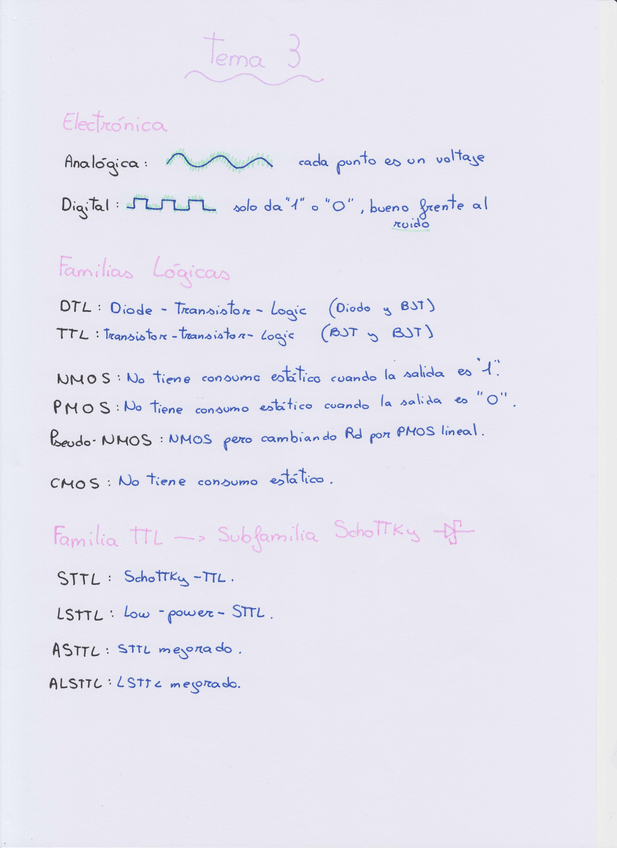 Tema 3
Electrónica
Analógica: cada punto es un voltaje
Digital: solo da "1" o "0", bueno frente al
ruido
Familias Lógicas
DTL: Diode-Transistor-Logic (Diodo y BJT)
TTL: Transistor-transistor-Logic (BJT y BJT)
NMOS: No tiene consumo estático cuando la salida es "1".
PMOS: No tiene consumo estático cuando la salida es "0".
Pseudo-NMOS: NMOS pero cambiando Rd por PMOS lineal.
CMOS: No tiene consumo estático.
Familia TTL -> Subfamilia Schottky
STTL: Schottky-TTL.
LSTTL: Low-power-STTL.
ASTTL: STTL mejorado.
ALSTTL: LSTTL mejorado.